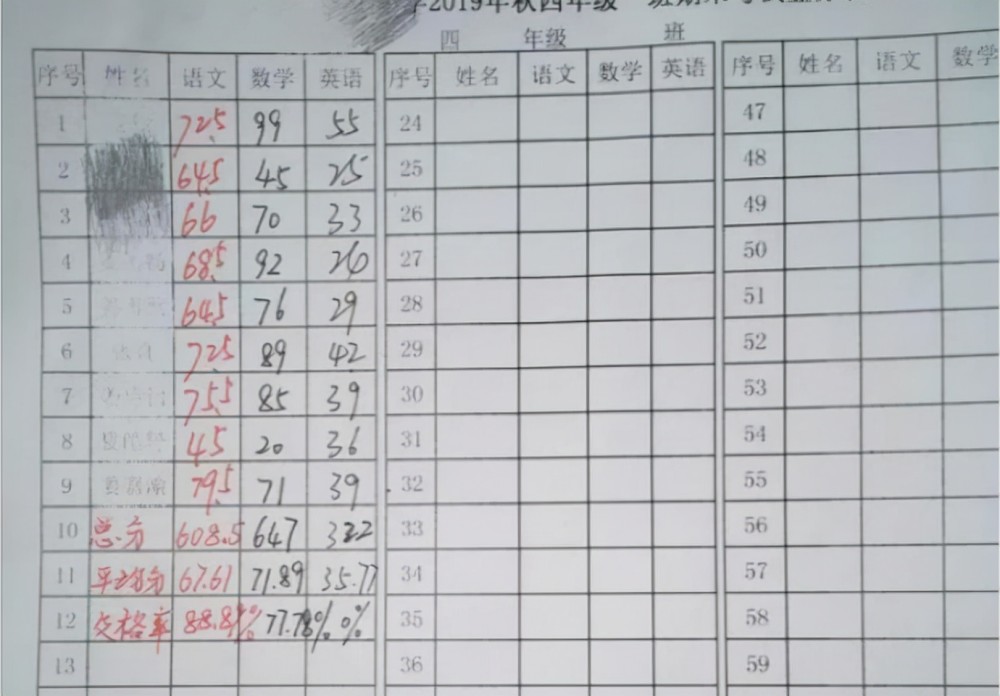 2019年秋四年级 班期末考试
四 年级 班
序号 姓名 语文 数学 英语 序号 姓名 语文 数学 英语 序号 姓名 语文 数学
1 72.5 99 55 24 47
2 64.5 45 25 25 48
3 66 70 33 26 49
4 68.5 92 26 27 50
5 64.5 76 29 28 51
6 72.5 89 42 29 52
7 75.5 85 39 30 53
8 45 20 36 31 54
9 79.5 71 39 32 55
10 总分 608.5 647 322 33 56
11 平均分 67.61 71.89 35.77 34 57
12 及格率 % 77.78% 0% 35 58
13 36 59